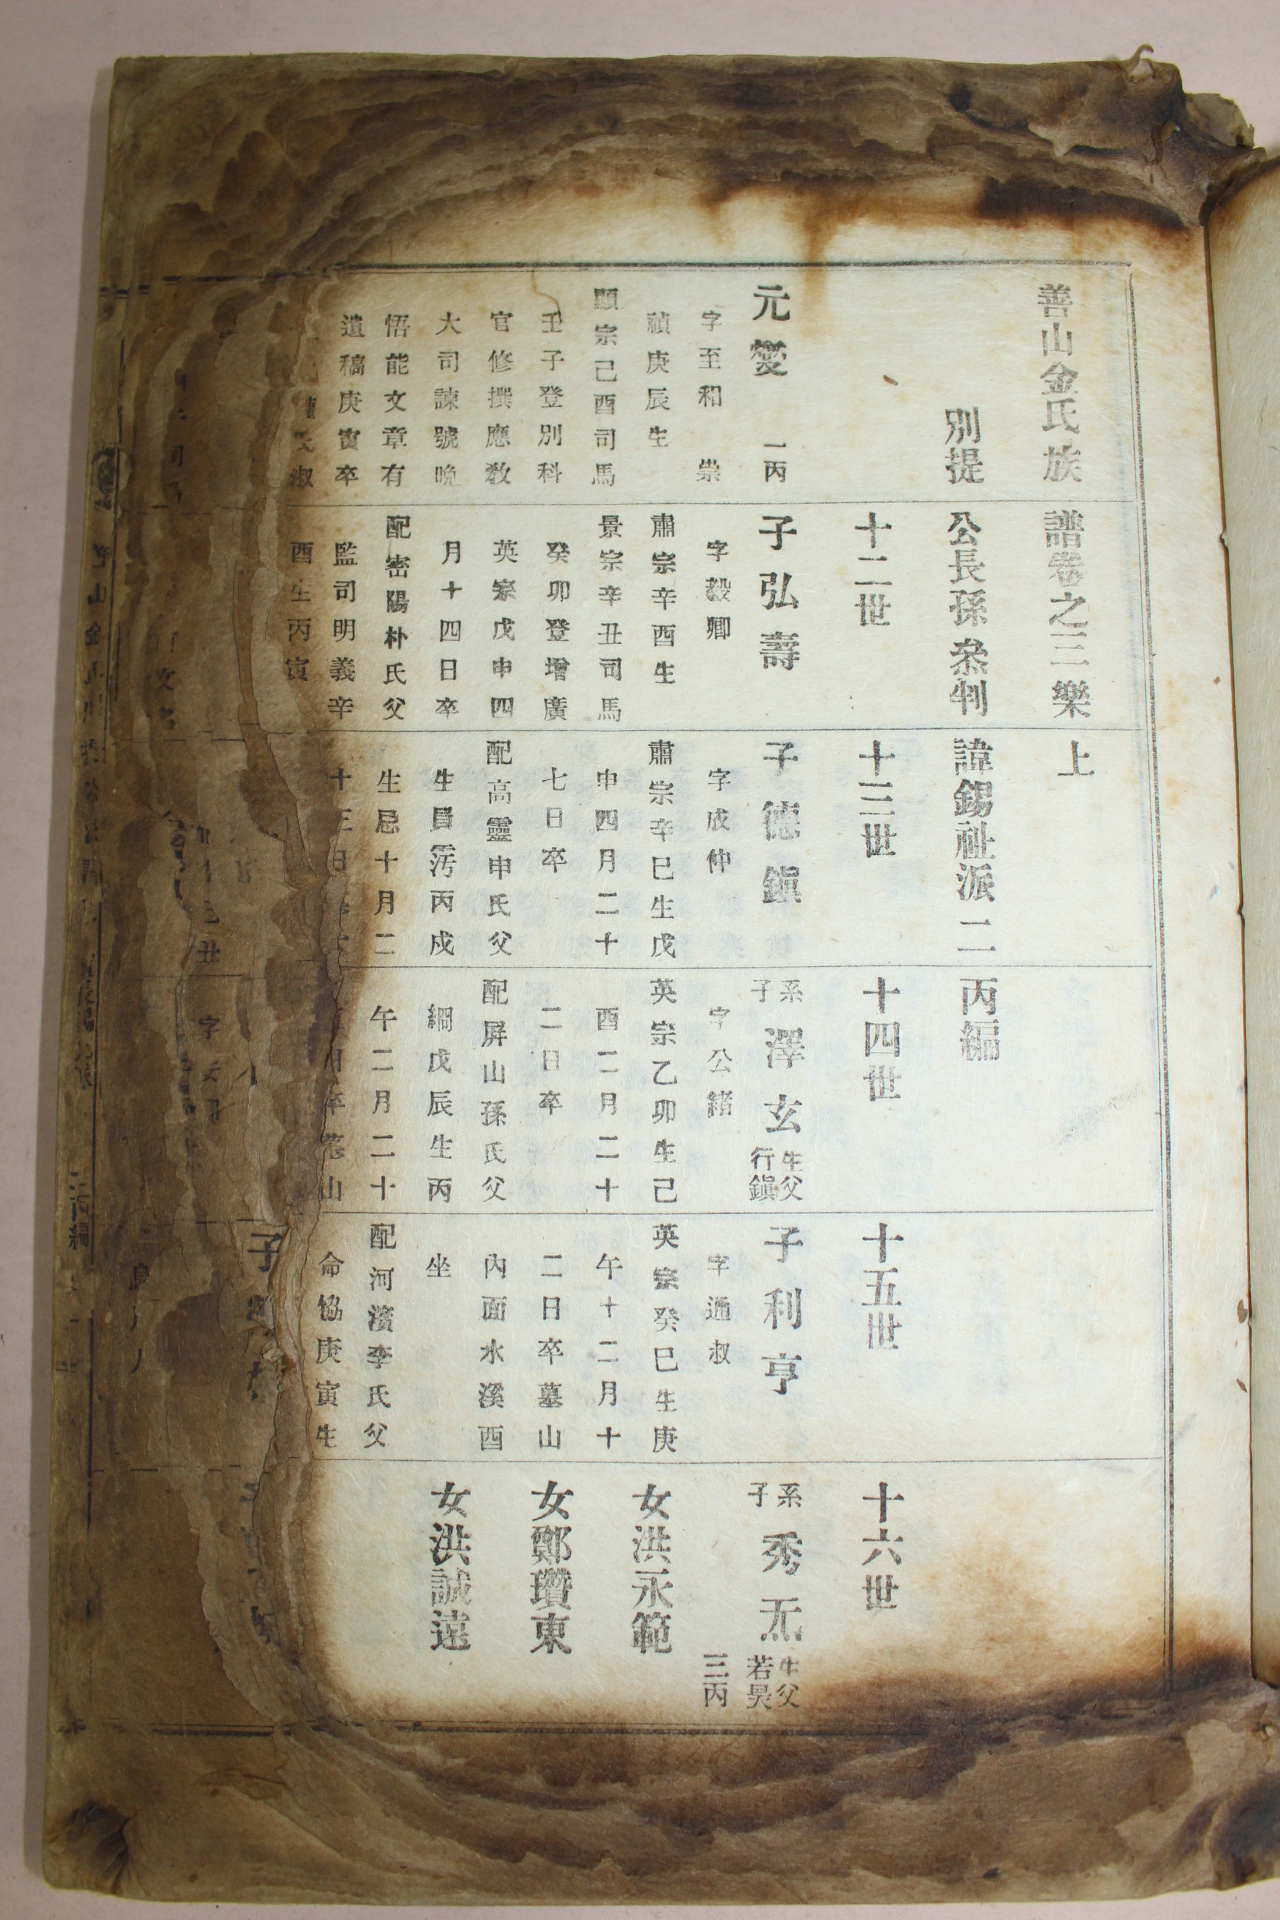 善山金氏族譜卷之三樂上
別提公長孫叅判諱錫祉派二丙編
十二世
十三世
十四世
十五世
十六世
元燮
一丙
字至和 崇
禎庚辰生
顯宗己酉司馬
壬子登別科
官修撰應敎
大司諫號晩
悟能文章有
遺稿庚寅卒
子弘壽
字毅卿
肅宗辛酉生
景宗辛丑司馬
癸卯登增廣
英宗戊申四
月十四日卒
配密陽朴氏父
監司明義辛
酉生丙寅
子德鎭
字成仲
肅宗辛巳生戊
申四月二十
七日卒
配高靈申氏父
生員霶丙戌
生忌十月二
系子澤玄
生父行鎭
字公緖
英宗乙卯生己
酉二月二十
二日卒
配屛山孫氏父
綱戊辰生丙
午二月二十
子利亨
字通叔
英宗癸巳生庚
午十二月十
二日卒墓山
內面水溪酉
坐
配河濱李氏父
命恊庚寅生
系子秀炁
生父若昊
三丙
女洪永範
女鄭瓚東
女洪誠遠